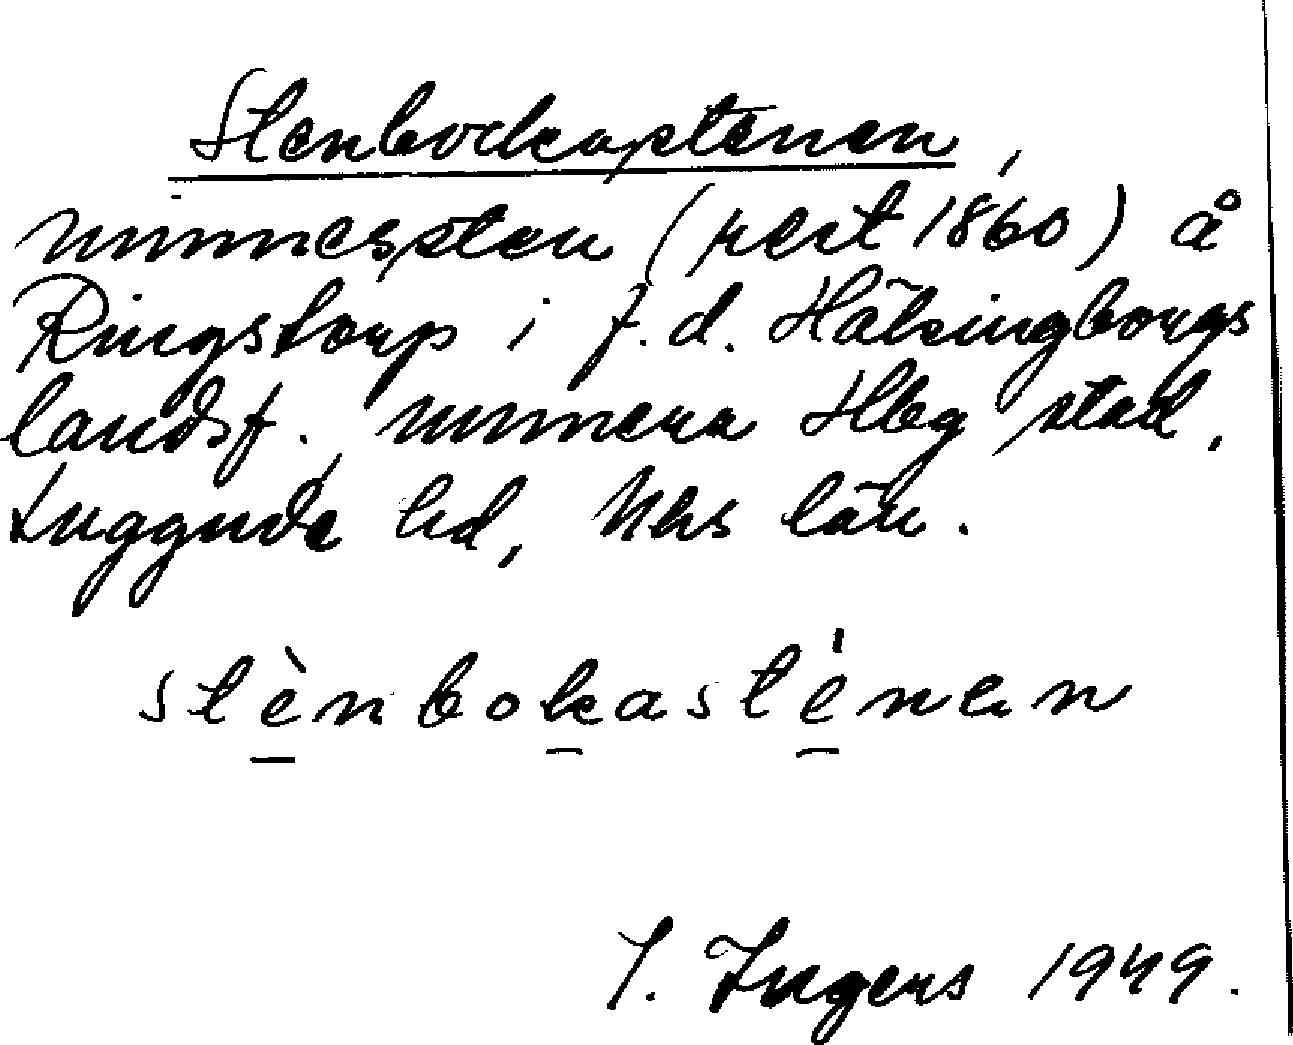 Stenbockastenen,
minnessten (rest 1860) å
Ringstorp i f.d. Hälsingborgs
landsf., numera Hbg stad,
Luggude hd, Mhs län.
stènbokasténen
I. Ingers 1949.